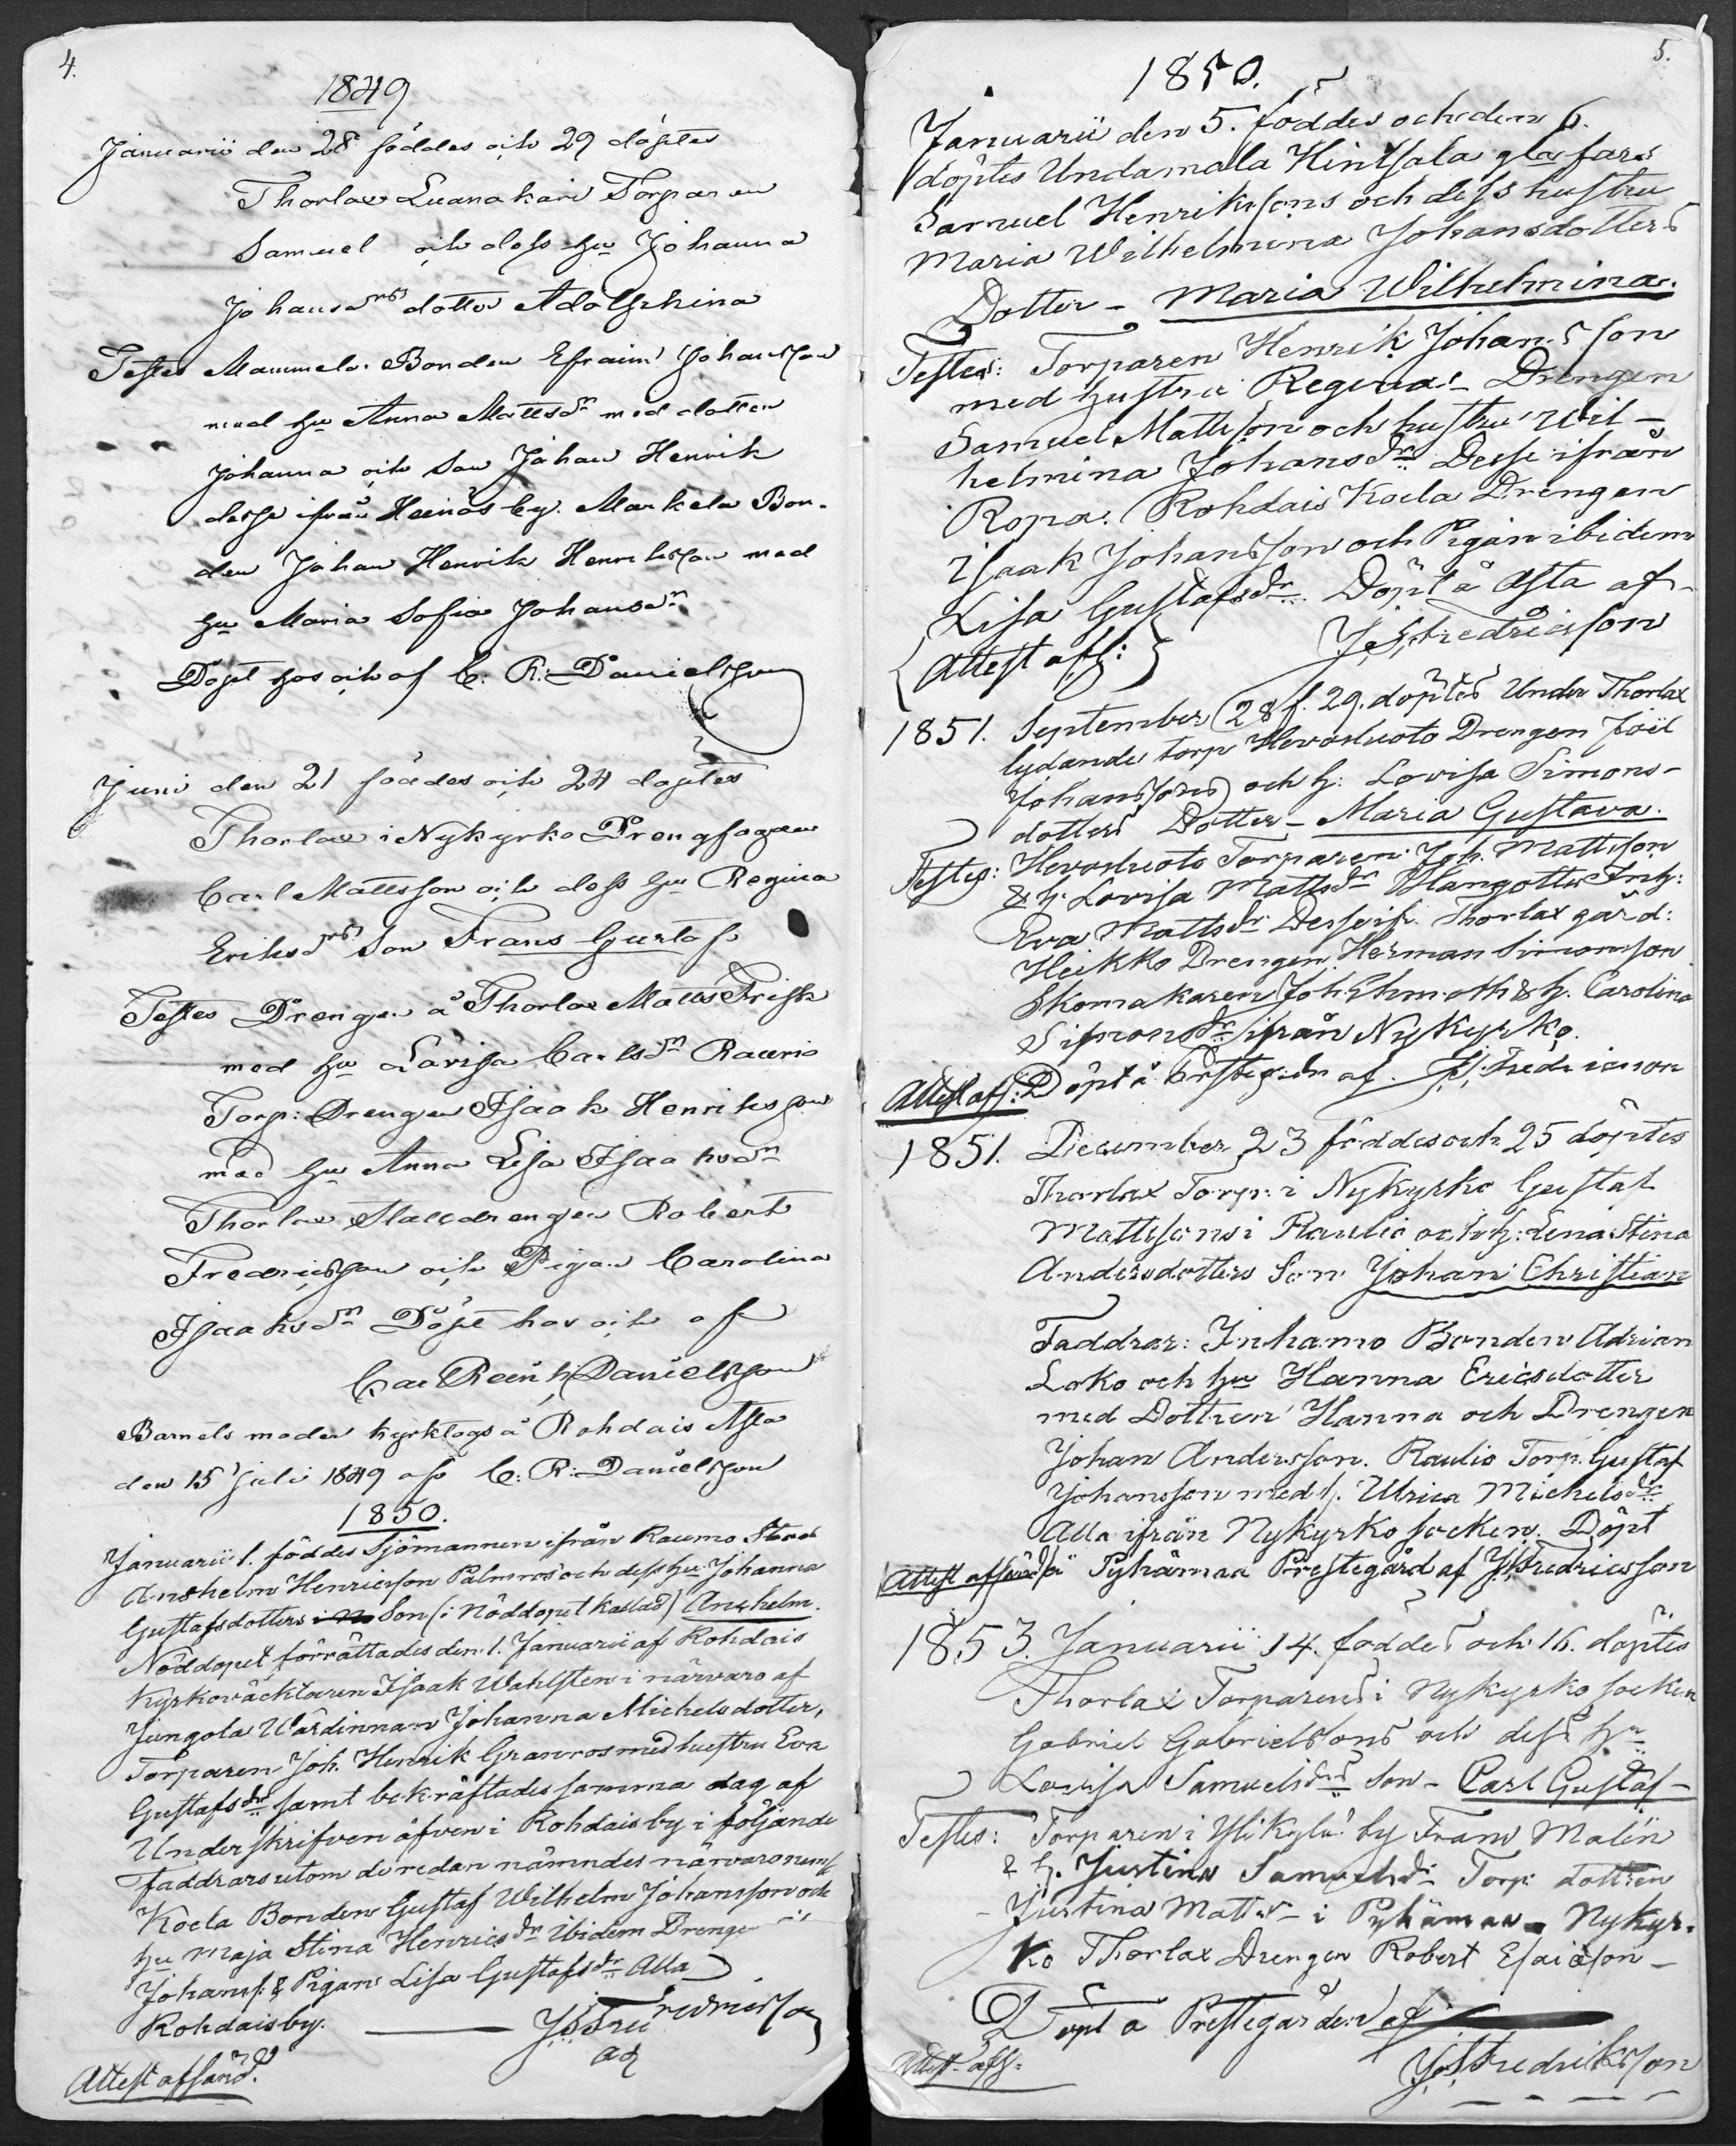 4.
1849
Januarii den 28 föddes och 29 döptes
Thorlax Luanakari Torparen
Samuel och dess hu Johanna
Johansdrs dotter Adolphina
Testes Mammela Bonden Efraim Johansson
med hu Anna Mattsdr med dotter
Johanna och Son Johan Henrik
desse ifrån Heinäs by. Markela Bon-
den Johan Henrik Henriksson med
hu Maria Sofia Johansdr
Döpt hos och af C: R: Danielsson
Juni den 21 föddes och 24 döptes
Thorlax i Nykyrko Drengfogden
Carl Mattsson och dess hu Regina
Eriksdrs Son Frans Gustaf
Testes Drengen å Thorlax Matts Frisk
med hu Lovisa Carlsdr Raurio
Torp: Drengen Isaak Henriksson
med hu Anna Lisa Isaaksdr
Thorlax Stalldrengen Robert
Fredricsson och Pigan Carolina
Isaaksdr Döpt hos och af
Carl Reinh Danielsson
Barnets moder kyrktogs å Rohdais Asta
den 15 Juli 1849 af C: R: Danielsson
1850.
Januarii 1. föddes Sjömannen ifrån Raumo Stad
Anshelm Henricsson Palmros och dess hu Johanna
Gustafsdotters Son (i Nöddopet kallad) Anshelm.
Nöddopet förrättades den 1. Januarii af Rohdais
Kyrkoväcktaren Isaak Wahlsten i närvaro af
Jungola Wärdinnan Johanna Michelsdotter,
Torparen Joh. Henrik Granroos med hustru Eva
Gustafsdr samt bekräftades samma dag af
Underskrifven äfven i Rohdais by i följande
Faddrars utom de redan nämndes närvaro neml
Koela Bonden Gustaf Wilhelm Johansson och
hu Maja Stina Henricsdr Ibidem Drengen
Johanss: & Pigan Lisa Gustafsdr Alla
Rohdaisby. JS Fredricsson
Attest afsänd.
5.
1850.
Januarii den 5. föddes och den 6.
döptes Undamala Hintsala glafars
Samuel Henrikssons och dess hustru
Maria Wilhelmina Johansdotters
Dotter - Maria Wilhelmina.
Testes: Torparen Henrik Johansson
med hustru Regina - Drengen
Samuel Mattsson och hustru Wil-
helmina Johansdr: Desse ifrån
Ropa. Rohdais Koela Drengen
Isaak Johansson och Pigan ibidem
Lisa Gustafsdr. Döpt å Asta af
JS Fredricsson
{Attest afs:}
1851. September 28 f. 29. döptes Under Thorlax
lydande torp Hevosluoto Drengen Joel
Johanssons och h: Lovisa Simons-
dotters Dotter - Maria Gustava.
Testes: Hevosluoto Torparen Joh. Mattsson
& h. Lovisa Mattsdr Hangottu Inh:
Eva Mattsdr Desse if. Thorlax gård:
Heikko Drengen Herman Simonsson
Skomakaren Joh. & h. Carolina
Simonsdr ifrån Nykyrko.
Attest afs: Döpt å Prestegdn af JS: Fredricsson
1851. December 23 föddes och 25 döptes
Thorlax Torp: i Nykyrko Gustaf
Mattssons i Raulio och h: Lena Stina
Andersdotters Son Johan Christian
Faddrar: Inhamo Bonden Adrian
Loko och hu Hanna Ericsdotter
med Dottren Hanna och Drengen
Johan Andersson. Raulio Torp. Gustaf
Johansson med h. Ulrica Michelsdr
Alla ifrån Nykyrko socken. Döpt
Attest afsänd å Pyhämaa Prestegård af JS Fredricsson
1853. Januarii 14. föddes och 16. döptes
Thorlax Torparens i Nykyrko socken
Gabriel Gabrielssons och dess hu
Lovisa Samuelsdrs Son - Carl Gustaf -
Testes: Torparen i Ylikylä by Frans Malén
& h. Justina Samuelsdr Torp: dottren
Justina Mattsdr - i Pyhämaa - Nykyr-
ko Thorlax Drengen Robert Esaiasson -
Döpt å Prestegården af
Attest. afs: JS Fredriksson